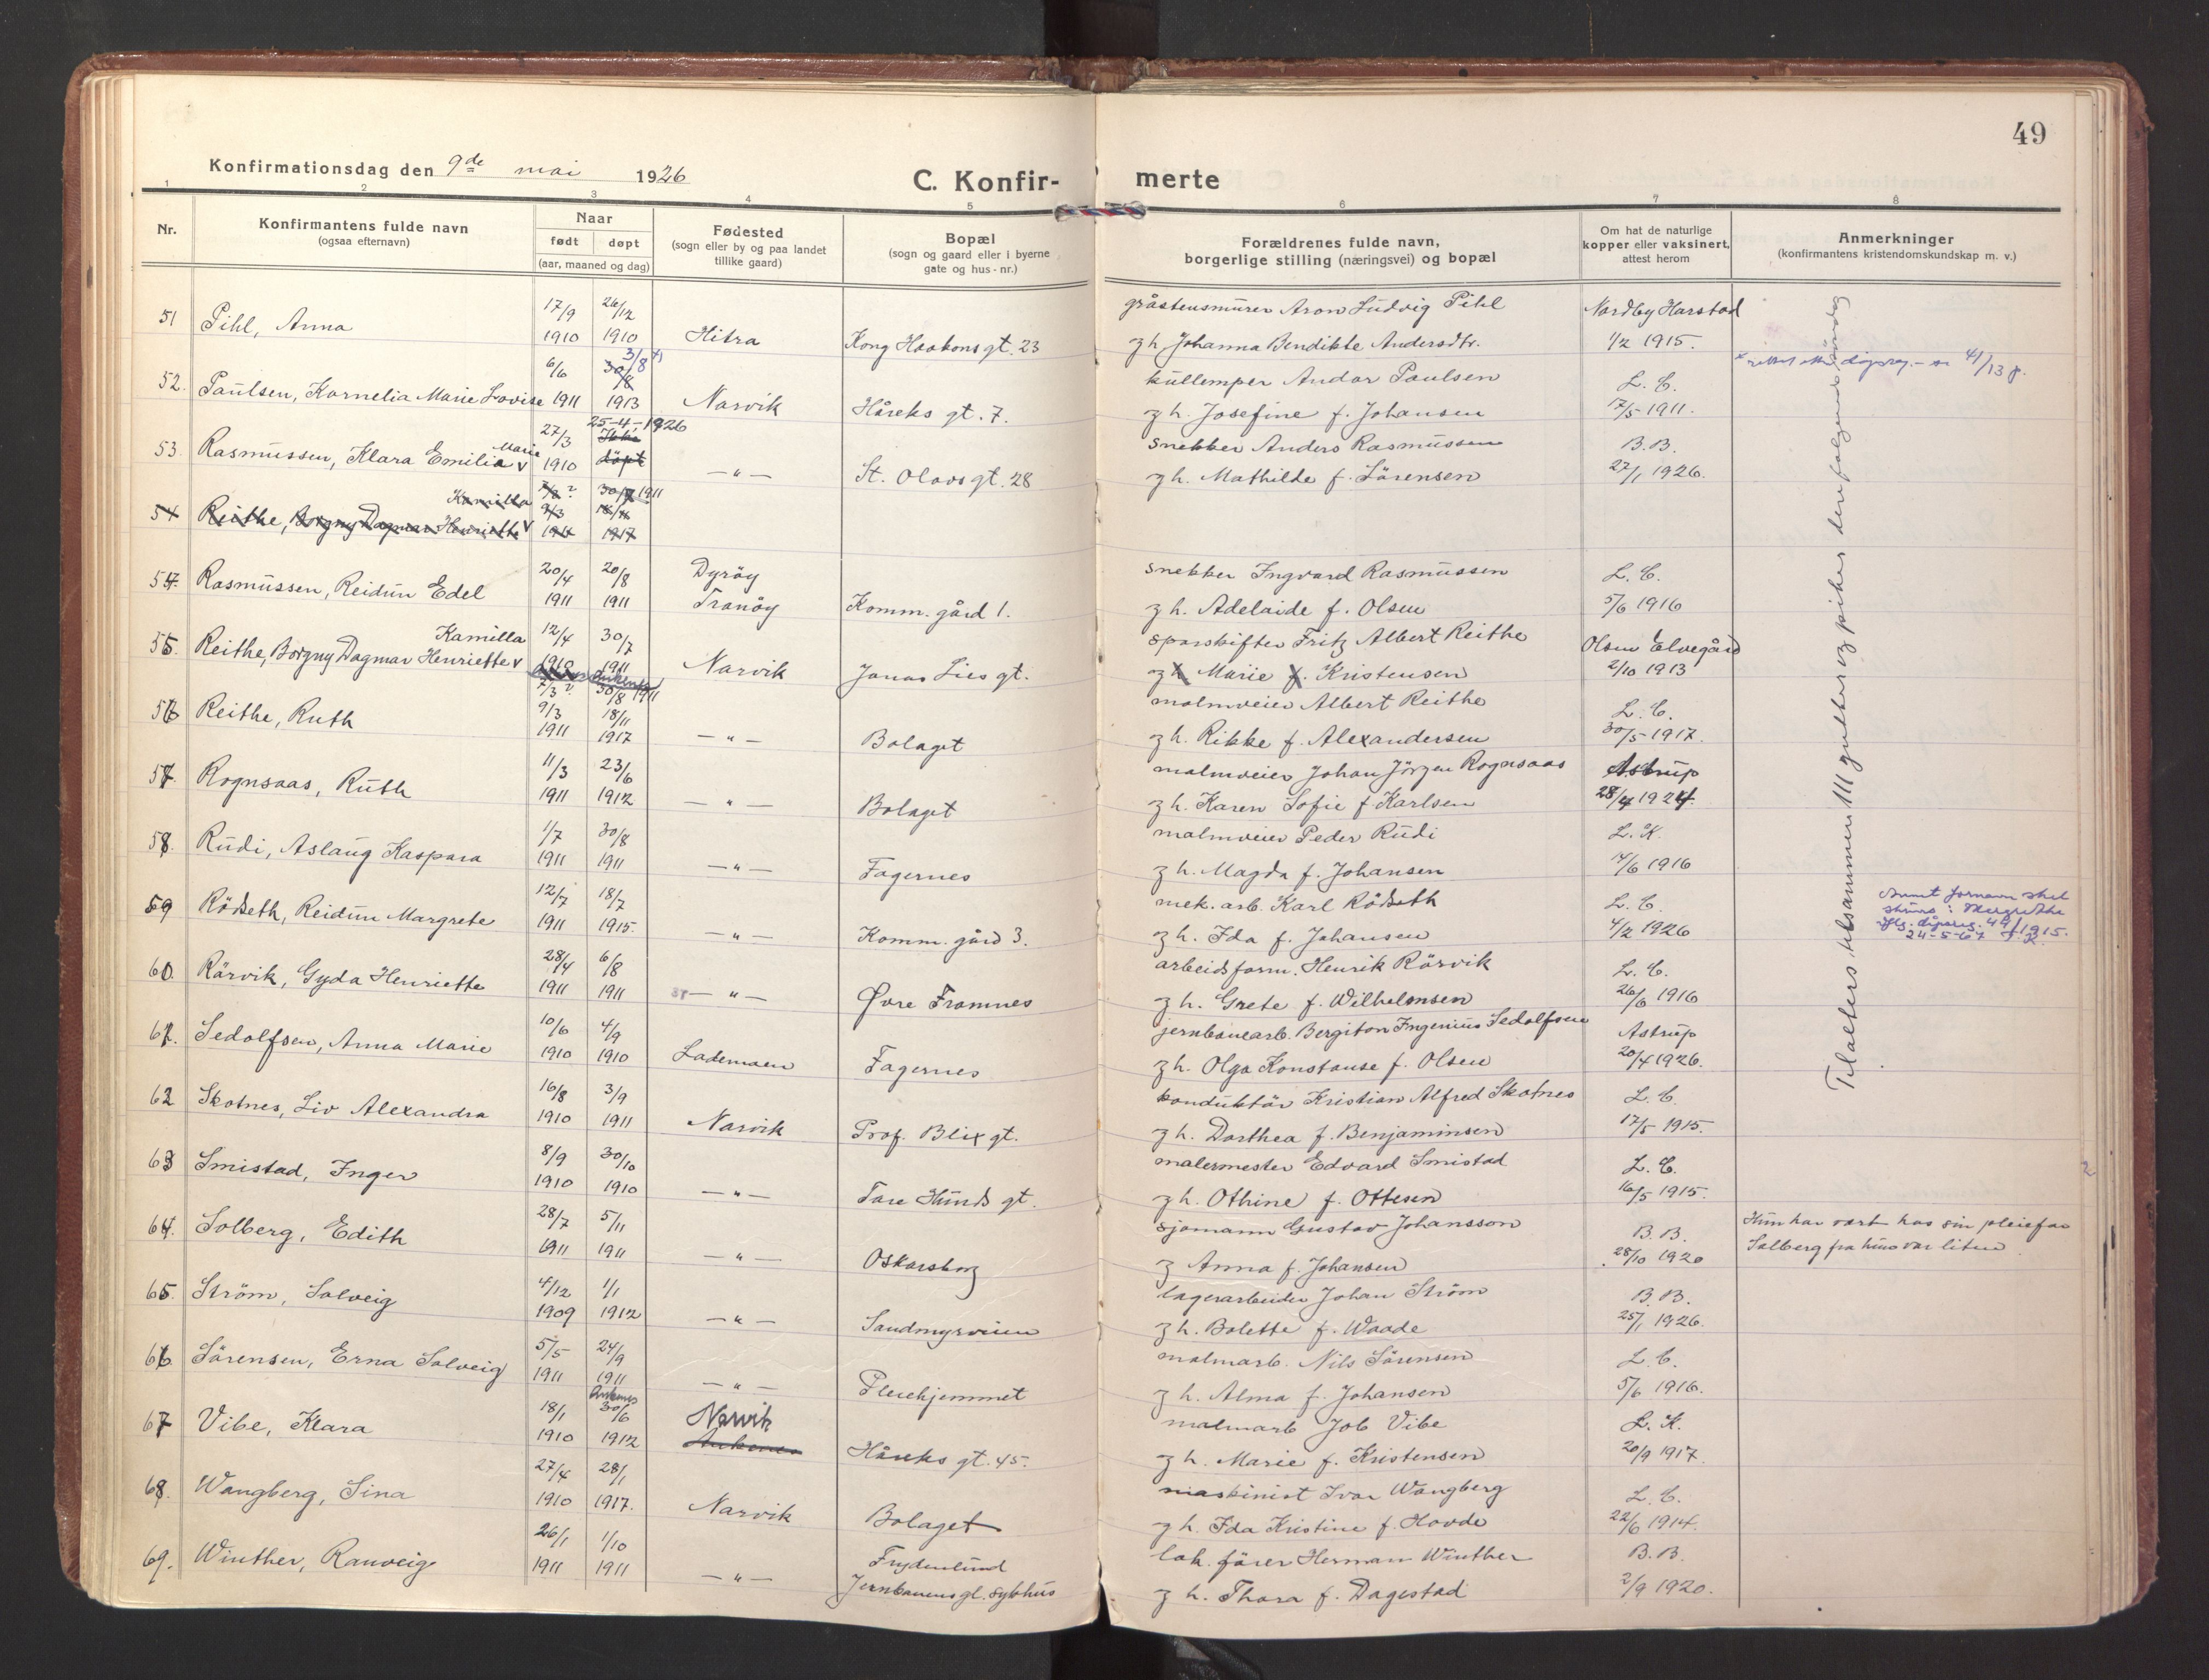 49
Konfirmationsdag den 9de mai 1926
C. Konfir- merte
1 2 3 4 5 6 7 8
Nr.
Konfirmantens fulde navn
(ogsaa efternavn)
Naar
født døpt
(aar, maaned og dag)
Fødested
(sogn eller by og paa landet
tillike gaard)
Bopæl
(sogn og gaard eller i byerne
gate og hus-nr.)
Forældrenes fulde navn,
borgerlige stilling (næringsvei) og bopæl
Om hat de naturlige
kopper eller vaksinert,
attest herom
Anmerkninger
(konfirmantens kristendomskundskap m. v.)
17/9 26/12 gråstensmurer Aron Ludvig Pihl Nordby Harstad
51 Pihl, Anna 1910 1910 Hitra Kong Haakons gt. 23 g h. Johanna Bendikte Andersdtr. 1/2 1915.
6/6 30/8 3/8 kullemper Andor Paulsen L. C. 41/13
52. Paulsen, Kornelia Marie Lovise 1911 1913 Narvik Håreks gt. 7. g h. Josefine f. Johansen 17/5 1911.
27/3 25-4-1926 Ikke snekker Anders Rasmussen B. B.
53 Rasmussen, Klara Emilie Marie 1910 døpt — " — St. Olavs gt. 28 g h. Mathilde f. Sörensen 27/1 1926.
Kamilla 30/7 1911
54 Reithe, Borgny Dagmar Henriette 9/3 18/11 1911 1917
20/4 20/8 Dyröy snekker Ingvard Rasmussen L. C.
54. Rasmussen, Reidun Edel 1911 1911 Tranöy Komm. gård 1. g h. Adelaide f. Olsen 5/6 1916
Kamilla 12/4 30/7 sporskifter Fritz Albert Reithe Olsen Elvegård
55. Reithe, Borgny Dagmar Henriette 1910 1911 Narvik Jonas Lies gt. g h Marie f. Kristensen 2/10 1913
7/3 ? 30/8 1911
9/3 18/11 malmveier Albert Reithe L. C.
56 Reithe, Ruth 1911 1917 — " — Bolaget g h. Rikke f. Alexandersen 30/5 1917.
11/3 23/6 malmveier Johan Jörgen Rognsaas Astrup
57. Rognsaas, Ruth 1911 1912 — " — Bolaget g h. Karen Sofie f Karlsen 28/4 1924.
1/7 30/8 malmveier Peder Rudi L. K.
58. Rudi, Aslaug Kaspara 1911 1911 — " — Fagernes g h. Magda f. Johansen 14/6 1916
12/7 18/7 mek. arb. Karl Rödseth L. C.
59 Rödseth, Reidun Margrete 1911 1915. — " — Komm. gård 3. g h. Ida f. Johansen 4/2 1926
Annet fornavn skal
skrives: Margrethe
jfg. dåpsreg. 44/1915.
24-5-67
28/4 6/8 arbeidsform. Henrik Rörvik L. C.
60. Rörvik, Gyda Henriette 1911 1911 — " — Øvre Framnes g h. Grete f. Wilhelmsen 26/6 1916
10/6 4/9 jernbanearb. Bergiton Ingenius Sedolfsen Astrup
61. Sedolfsen, Anna Marie 1910 1910 Lademoen Fagernes g h. Olga Konstanse f. Olsen 20/4 1926.
16/8 3/9 konduktör Kristian Alfred Skotnes L. C.
62 Skotnes, Liv Alexandra 1910 1911 Narvik Prof. Blix gt. g h. Dorthea f. Benjaminsen 17/5 1915.
8/9 30/10 malermester Edvard Smistad L. C.
63 Smistad, Inger 1910 1910 — " — Tore Hunds gt. g h. Othine f. Ottesen 16/5 1915.
28/7 5/11 sjömann Gustav Johansson B. B. Hun har vært hos sin pleiefar
64. Solberg, Edith 1911 1911 — " — Oskarsborg g Anna f. Johansen 28/10 1920 Solberg fra hun var liten.
4/12 1/1 lagerarbeider Johan Ström B. B.
65. Ström, Solveig 1909 1912 — " — Sandmyrveien g h. Bolette f. Waade 25/1 1926.
5/5 24/9 malmarb. Nils Sörensen L. C.
66. Sörensen, Erna Solveig 1911 1911 — " — Pleiehjemmet g h. Alma f. Johansen 5/6 1916.
Ankenes
18/1 30/6 Narvik malmarb Job Vibe L. K.
67 Vibe, Klara 1910 1912 Ankenes Håreks gt. 45. g h. Marie f. Kristensen 20/9 1917.
27/4 28/1 maskinist Ivar Wangberg L. C.
68. Wangberg, Sina 1910 1917. Narvik Bolaget g h. Ida Kristine f. Hovde 22/6 1914.
26/1 1/10 Frydenlund lok. fører Herman Winther B. B.
69. Winther, Ranveig 1911 1911 — " — Jernbanens gl. sykhus g h. Thora f. Dagestad 2/9 1920.
Tilalters tilsammen 111 gutter og piker den følgende söndag